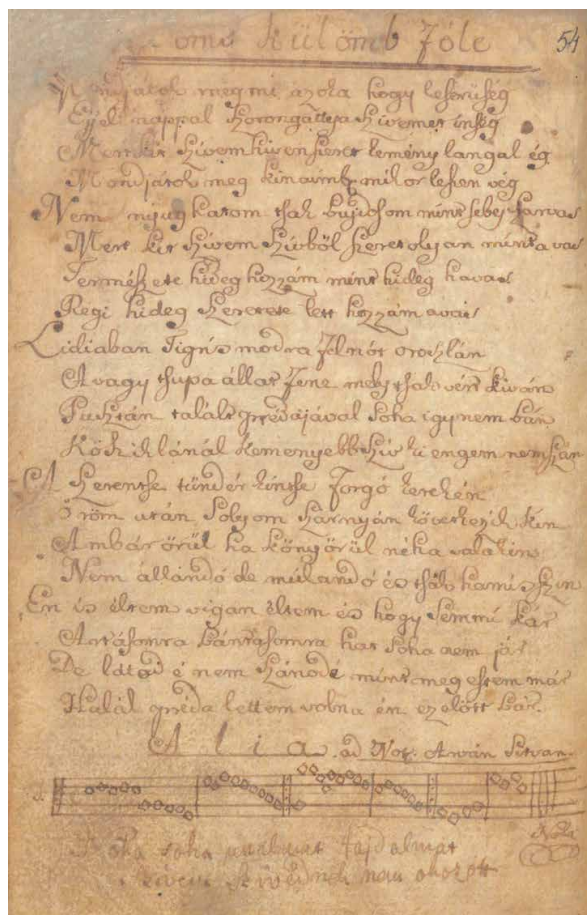 külömb Féle
54
meg mi az oka hogy keserűség
Éjjel nappal Szorongattya Szivemet inség
Mert kit Szivem hiven Szeret kemény langal ég
Mondjátok meg kinaimk mikor leszen vég
Nem nyughatom tsak bujdosom mint sebes Szarvas
Mert kit Szivem Szivből Szeret olyan mint a vas
Termész ete hideg hozzám mint hideg havas
Regi hideg Szerete lett hozzám avas
Lidiaban Tigris modra felnőt oroszlán
Avagy tsupa állat Fene mely tsak vért kiván
Pusztán talált prédájával Soha igy nem bán
Kősziklánál kemenyebb Szív ki engem nem szán
A Szerentse tündér kintse Forgó kerekén
Öröm után Solyom Szárnyán következik kin
Ambár örül ha könyörül néha valakin
Nem állandó de múlandó és tsak hamis Szin
En is éltem vigan éltem és hogy Semmi kár
Artásomra bántásomra hat Soha nem jár
De látod é nem Szánodé mint meg estem már
Halál préda lettem volna én ez előtt bár.
Alia ad Not. Istvan
Nota
soha fajdalmat
okozott